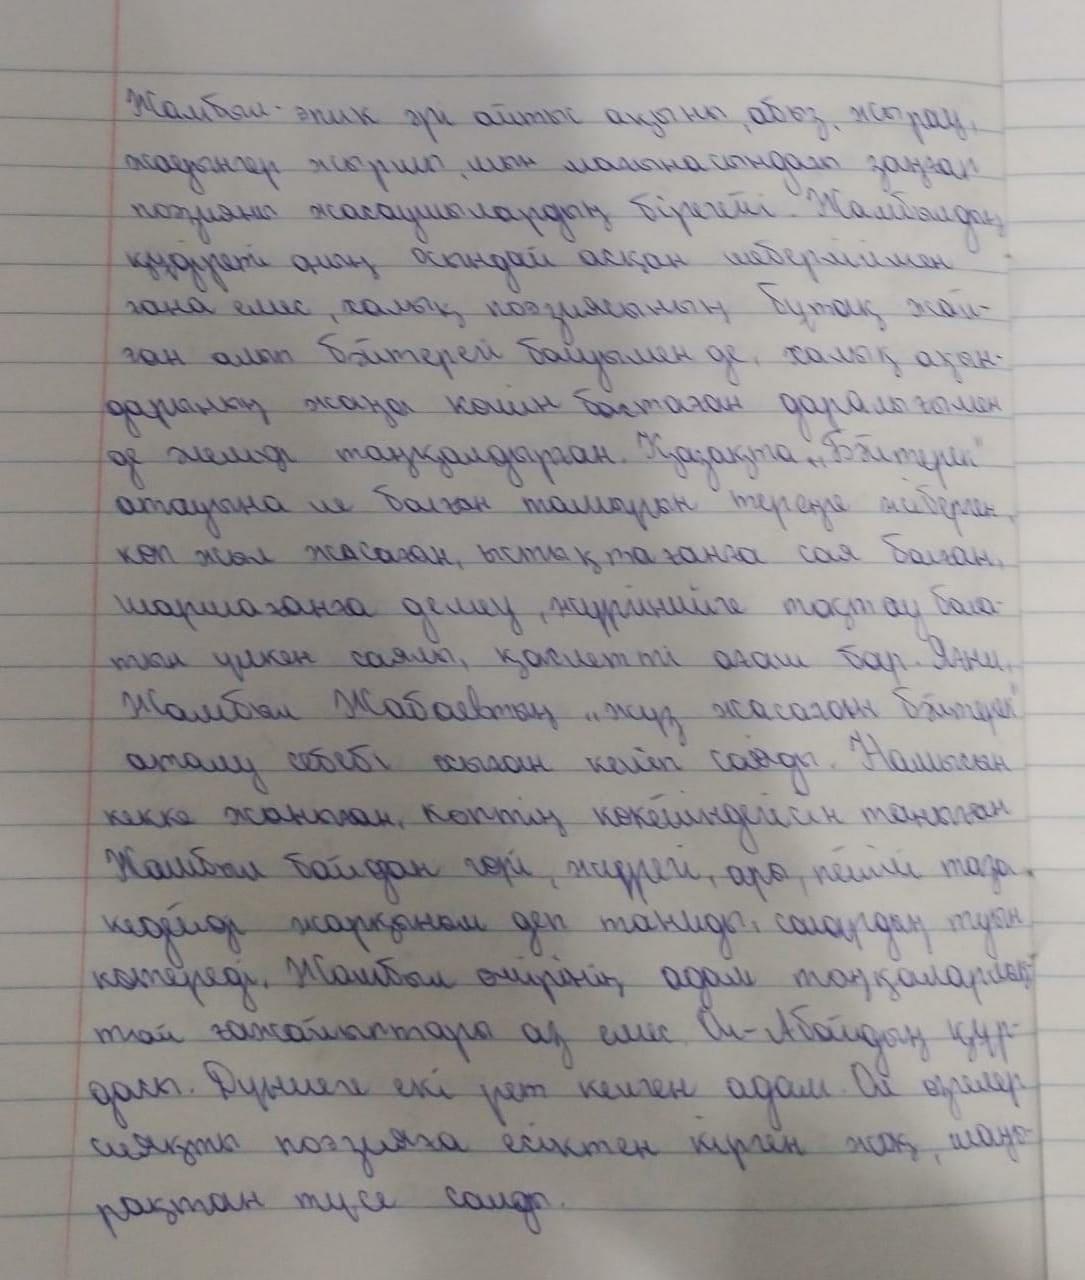 Жамбыл - эпик әрі айтыс ақыны, абыз, жырау,
жадынгер жыршы, шын мағынасындағы заңғар
поэзияны жасаушылардың бірегейі. Жамбылдың
құдіреті оның осындай асқан шеберлігімен
ғана емес, халық поэзиясының бұтақ жай-
ған алып бәйтерегі болуымен де, халық ақын-
дарының жаңа көшін бастаған даралығымен
де әлемді таңқалдырған. Қазақта „Бәйтерек"
атауына ие болған тамырын тереңге жіберген,
көп жыл жасаған, ыстықтағанға сая болған,
шаршағанға демеу, жүргіншіге тоқтау бола-
тын үлкен саялы, қасиетті ағаш бар. Яғни,
Жамбыл Жабаевтың „жүз жасаған бәйтерек"
аталу себебі осыған келіп саяды. Намысын
көкке жаныған, көптің көкейіндегісін таныған
Жамбыл байдан гөрі, жүдеп, ары, пейілі таза
кедейді жарқыным деп таниды, солардың туын
көтереді. Жамбыл өмірінің адам таңқаларлық
тай ғажайыптары аз емес. Ол - Абайдың құр-
дасы. Дүниеге екі рет келген адам. Ол өзгелер
сияқты поэзияға есіктен кірген жоқ, шаңы-
рақтан түсе салды.